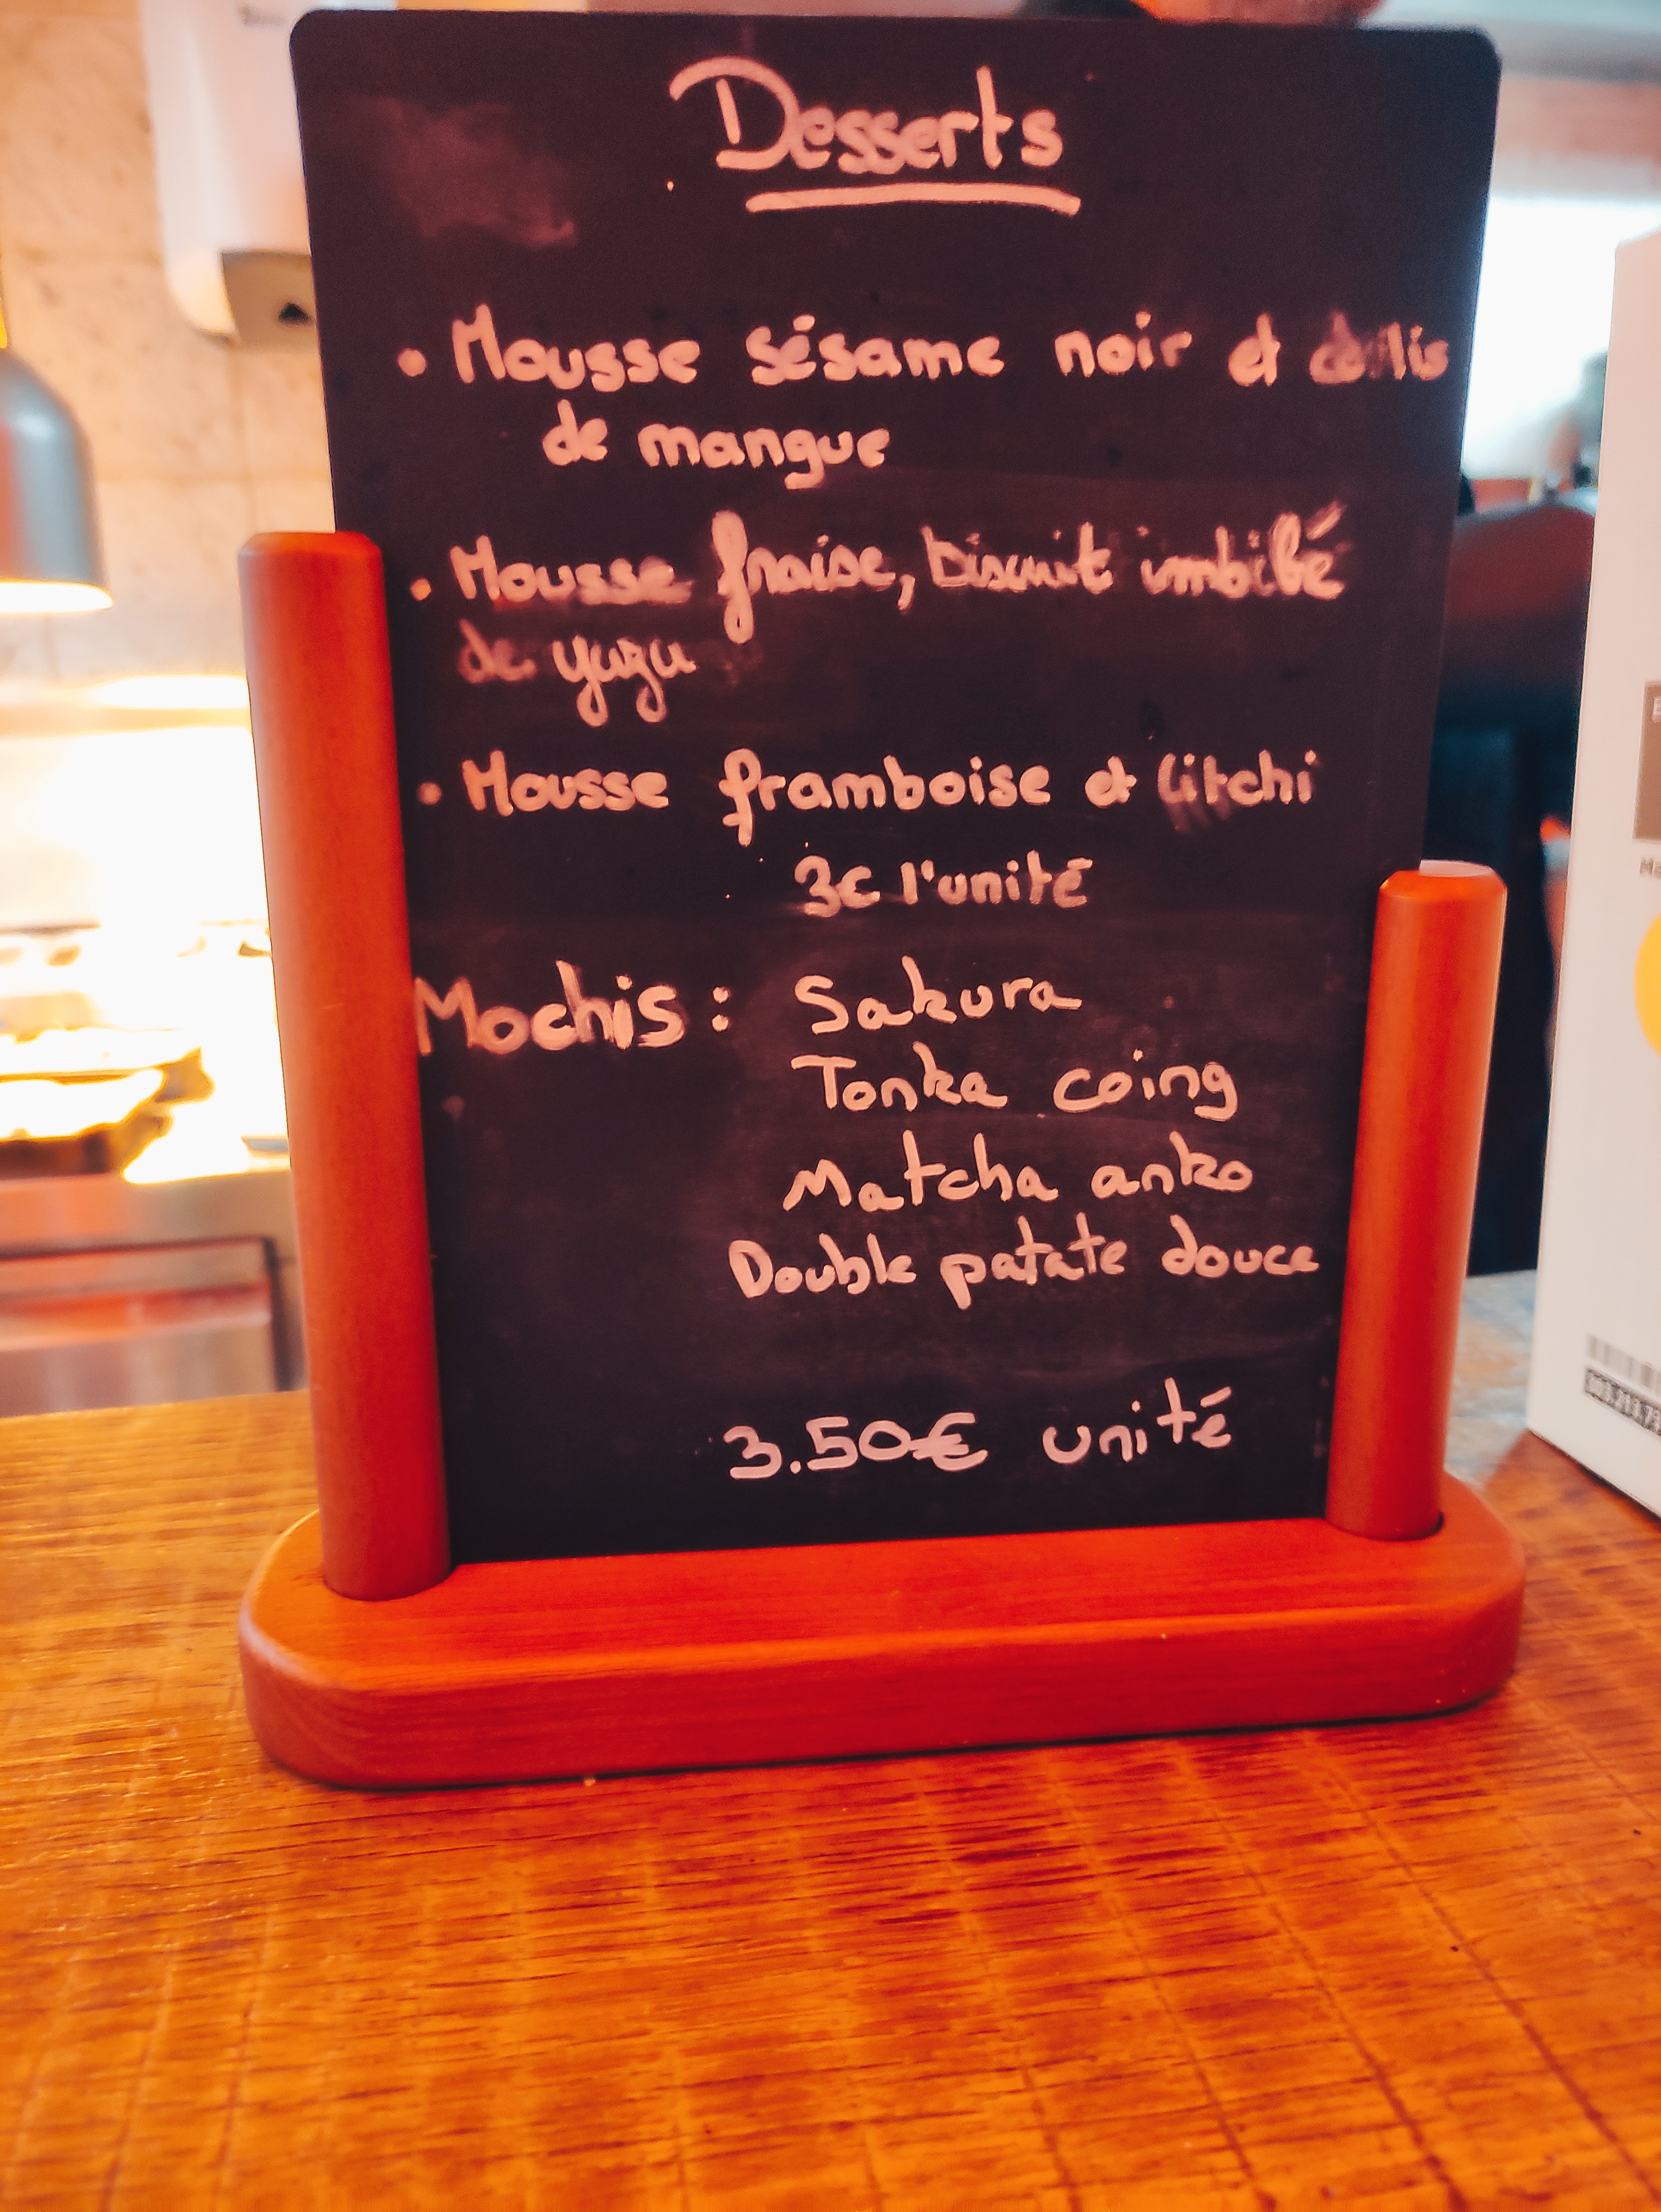 Desserts
• Mousse sésame noir et coulis
de mangue
• Mousse fraise, biscuit imbibé
de yuzu
• Mousse framboise et litchi
3€ l'unité
Mochis : Sakura
Tonka coing
Matcha anko
Double patate douce
3.50€ unité